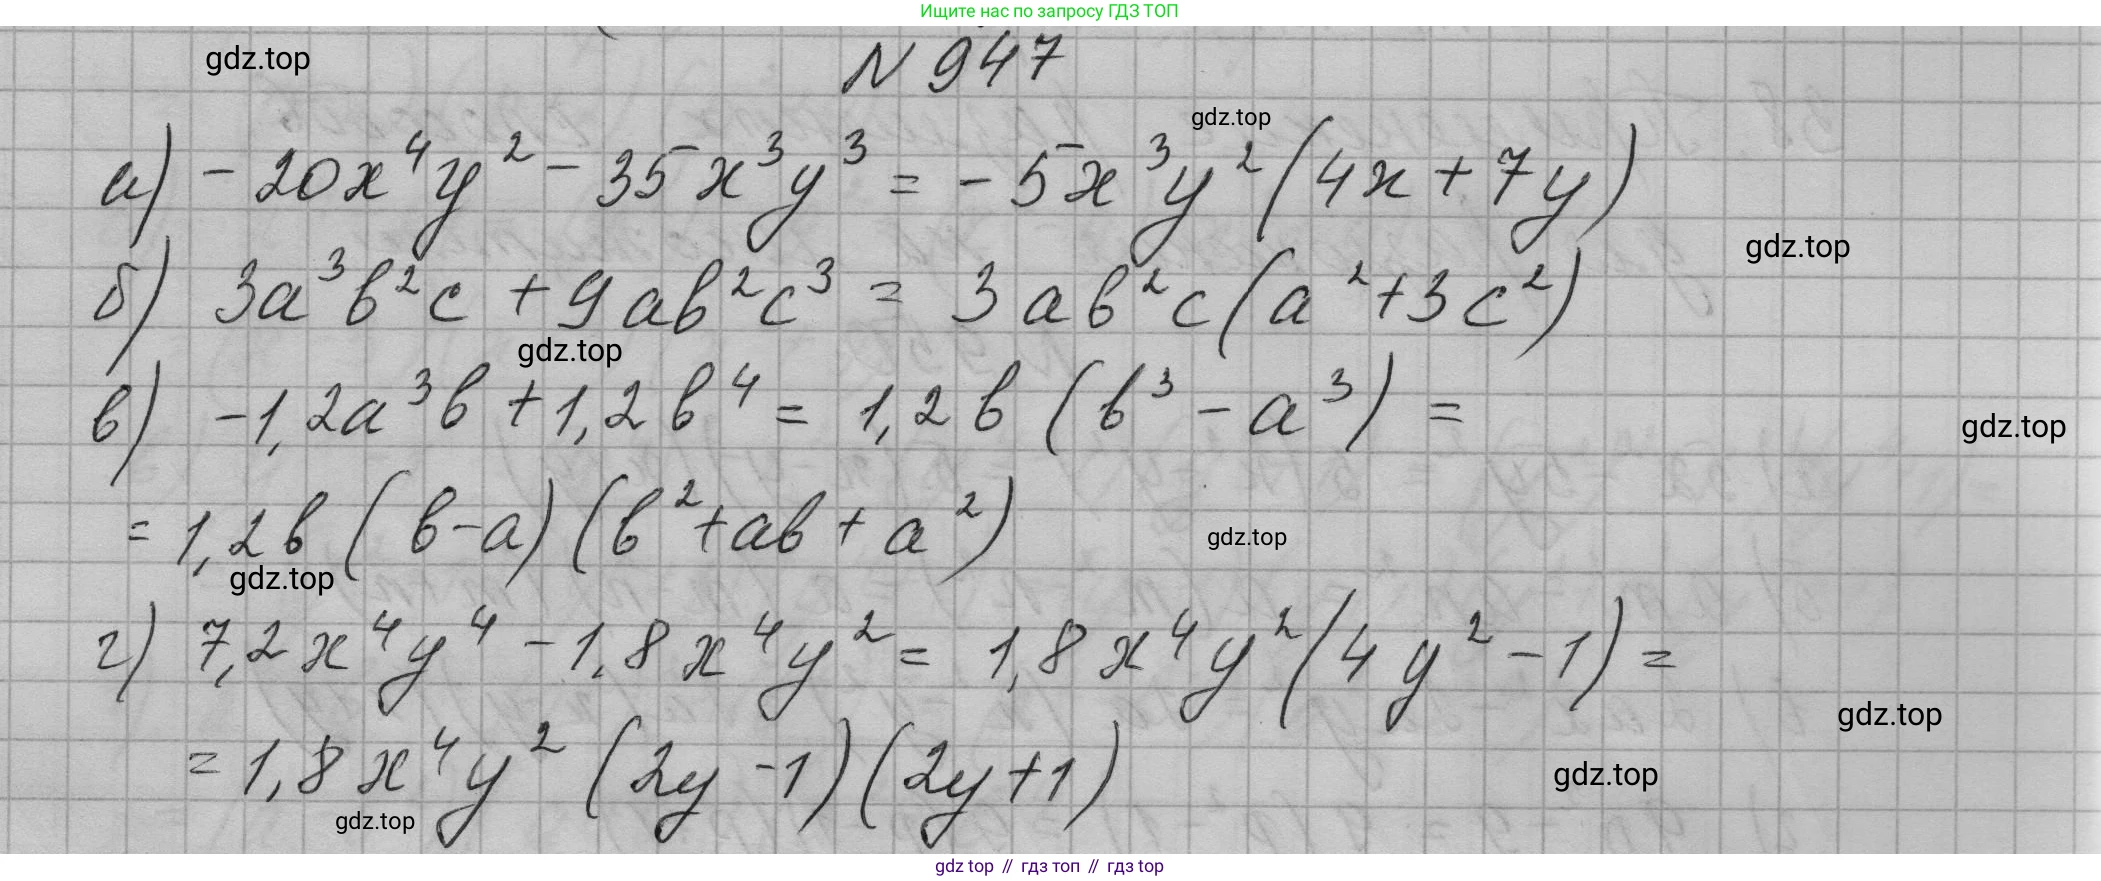 Ищите нас по запросу ГДЗ ТОП
N 947
gdz.top
gdz.top
а) -20x⁴y² - 35x³y³ = -5x³y²(4x + 7y)
gdz.top
б) 3a³b²c + 9ab²c³ = 3ab²c(a² + 3c²)
gdz.top
в) -1,2a³b + 1,2b⁴ = 1,2b(b³ - a³) =
gdz.top
= 1,2b(b - a)(b² + ab + a²)
gdz.top
gdz.top
г) 7,2x⁴y⁴ - 1,8x⁴y² = 1,8x⁴y²(4y² - 1) =
gdz.top
= 1,8x⁴y²(2y - 1)(2y + 1)
gdz.top
gdz.top
gdz top // гдз топ // gdz top